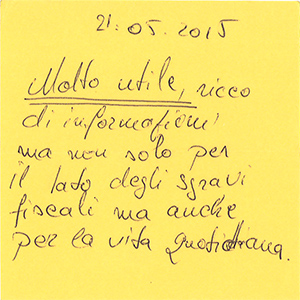 21.05.2015
Molto utile, ricco
di informazioni
ma non solo per
il lato degli sgravi
fiscali ma anche
per la vita quotidiana.